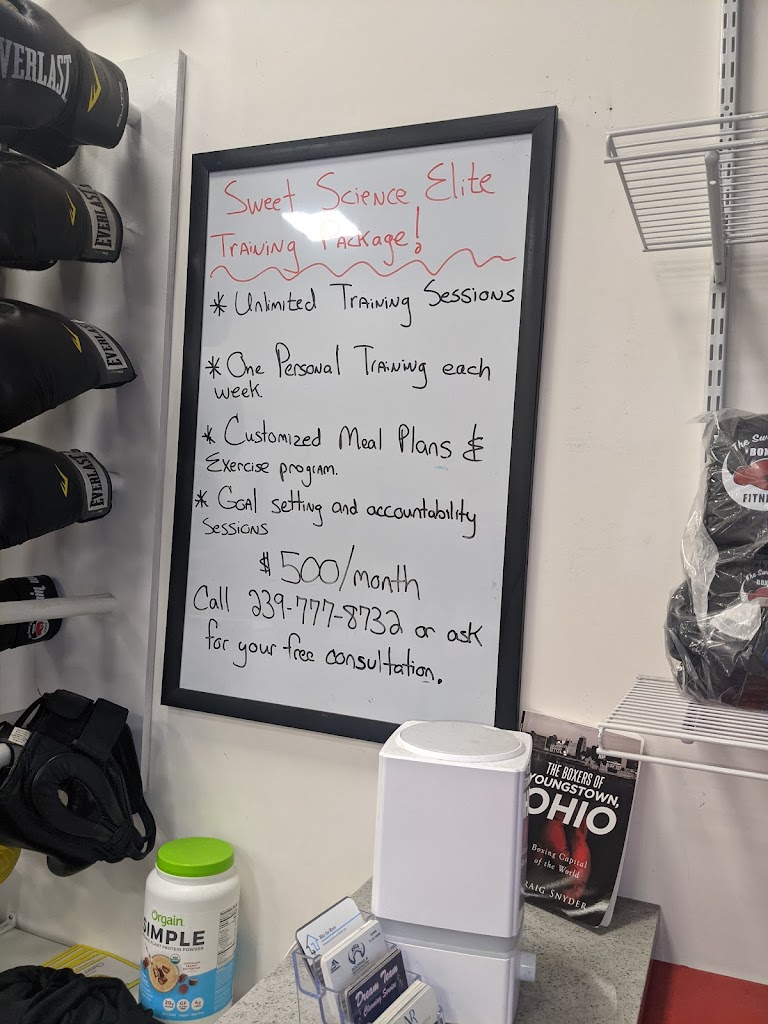 EVERLAST
EVERLAST
EVERLAST
EVERLAST
Sweet Science Elite
Training Package!
* Unlimited Training Sessions
* One Personal Training each
week
* Customized Meal Plans &
Exercise program.
* Goal setting and accountability
Sessions
$500/month
Call 239-777-8732 or ask
for your free consultation.
The Sw
BOX
FITN
The Sw
BOX
THE BOXERS OF
YOUNGSTOWN,
OHIO
Boxing Capital
of the World
RAIG SNYDER
Orgain
SIMPLE
PLANT PROTEIN POWDER
Dream Team
Cleaning Service